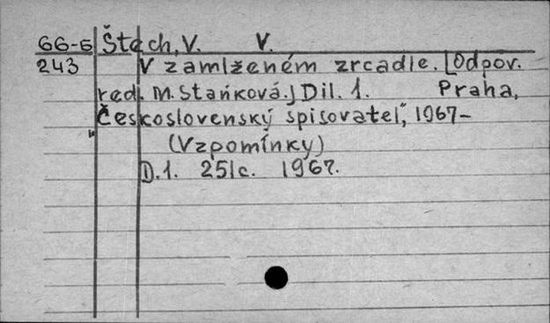 66-6 Štech, V. V.
243 V zamlženém zrcadle. [Odpov.
red. M. Staňková.] Dil. 1. Praha,
"Československý spisovatel", 1967-
(Vzpomínky)
D.1. 251c. 1967.